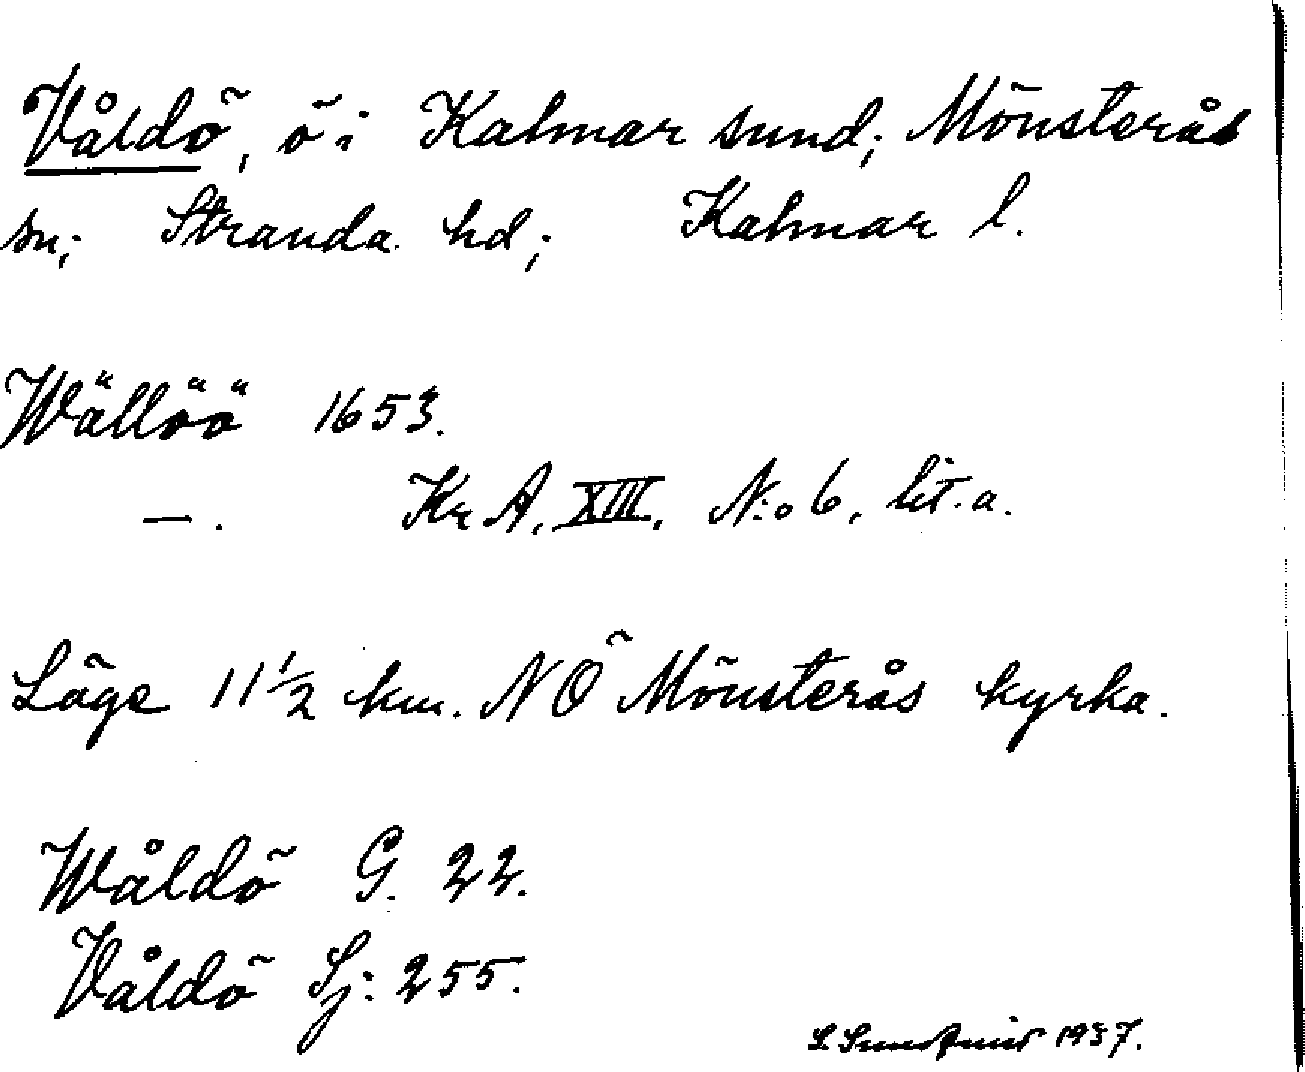 Våldö, ö i Kalmar sund; Mönsterås
sn; Stranda hd; Kalmar l.
Wällöö 1653.
— . Kr A. XIII. N:o 6, lit. a.
Läge 11 1/2 km. NÖ Mönsterås kyrka.
Wåldö G. 22.
Våldö Sj: 255.
1937.